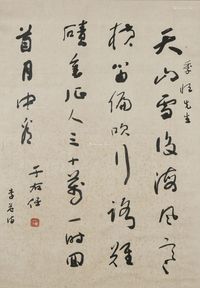 季恒先生
天山雪後海風寒
橫笛偏吹行路難
磧裏征人三十萬一時回
首月中看
于右任
李益詩